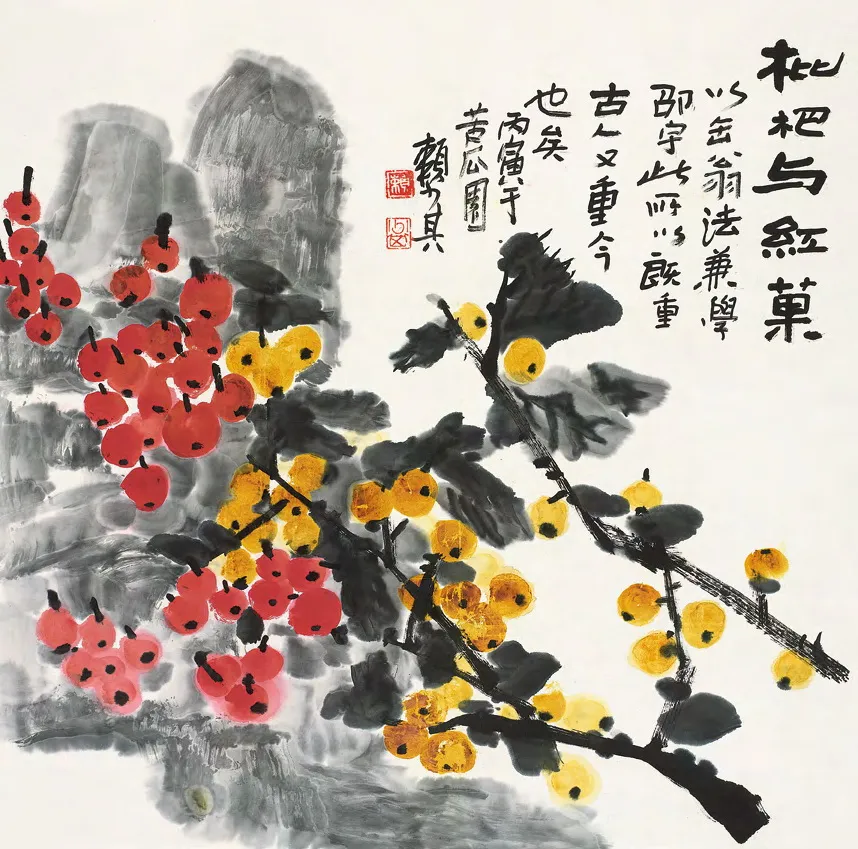 枇杷与紅菓
以缶翁法兼學
邵宇此所以既重
古人又重今
也矣
丙寅于
苦瓜園
賴少其
賴